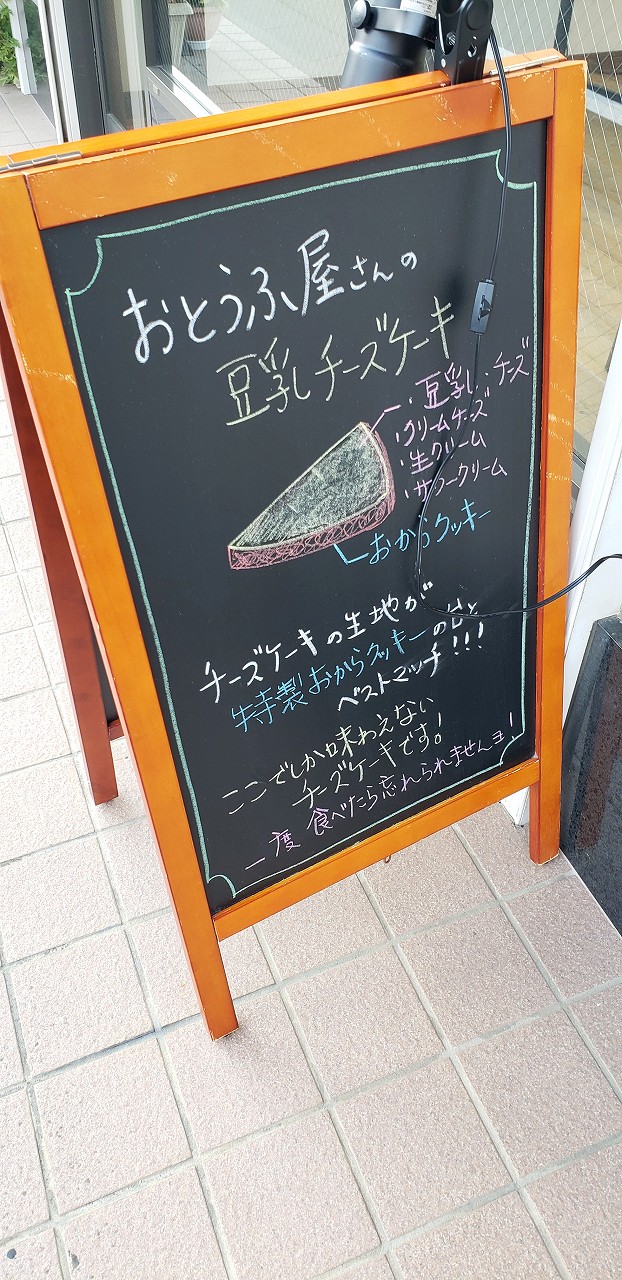 おとうふ屋さんの
豆乳チーズケーキ
・豆乳・チーズ
・クリームチーズ
・生クリーム
・サワークリーム
おからクッキー
チーズケーキの生地が
特製おからクッキーの台と
ベストマッチ!!!
ここでしか味わえない
チーズケーキです!
一度食べたら忘れられませんヨ!